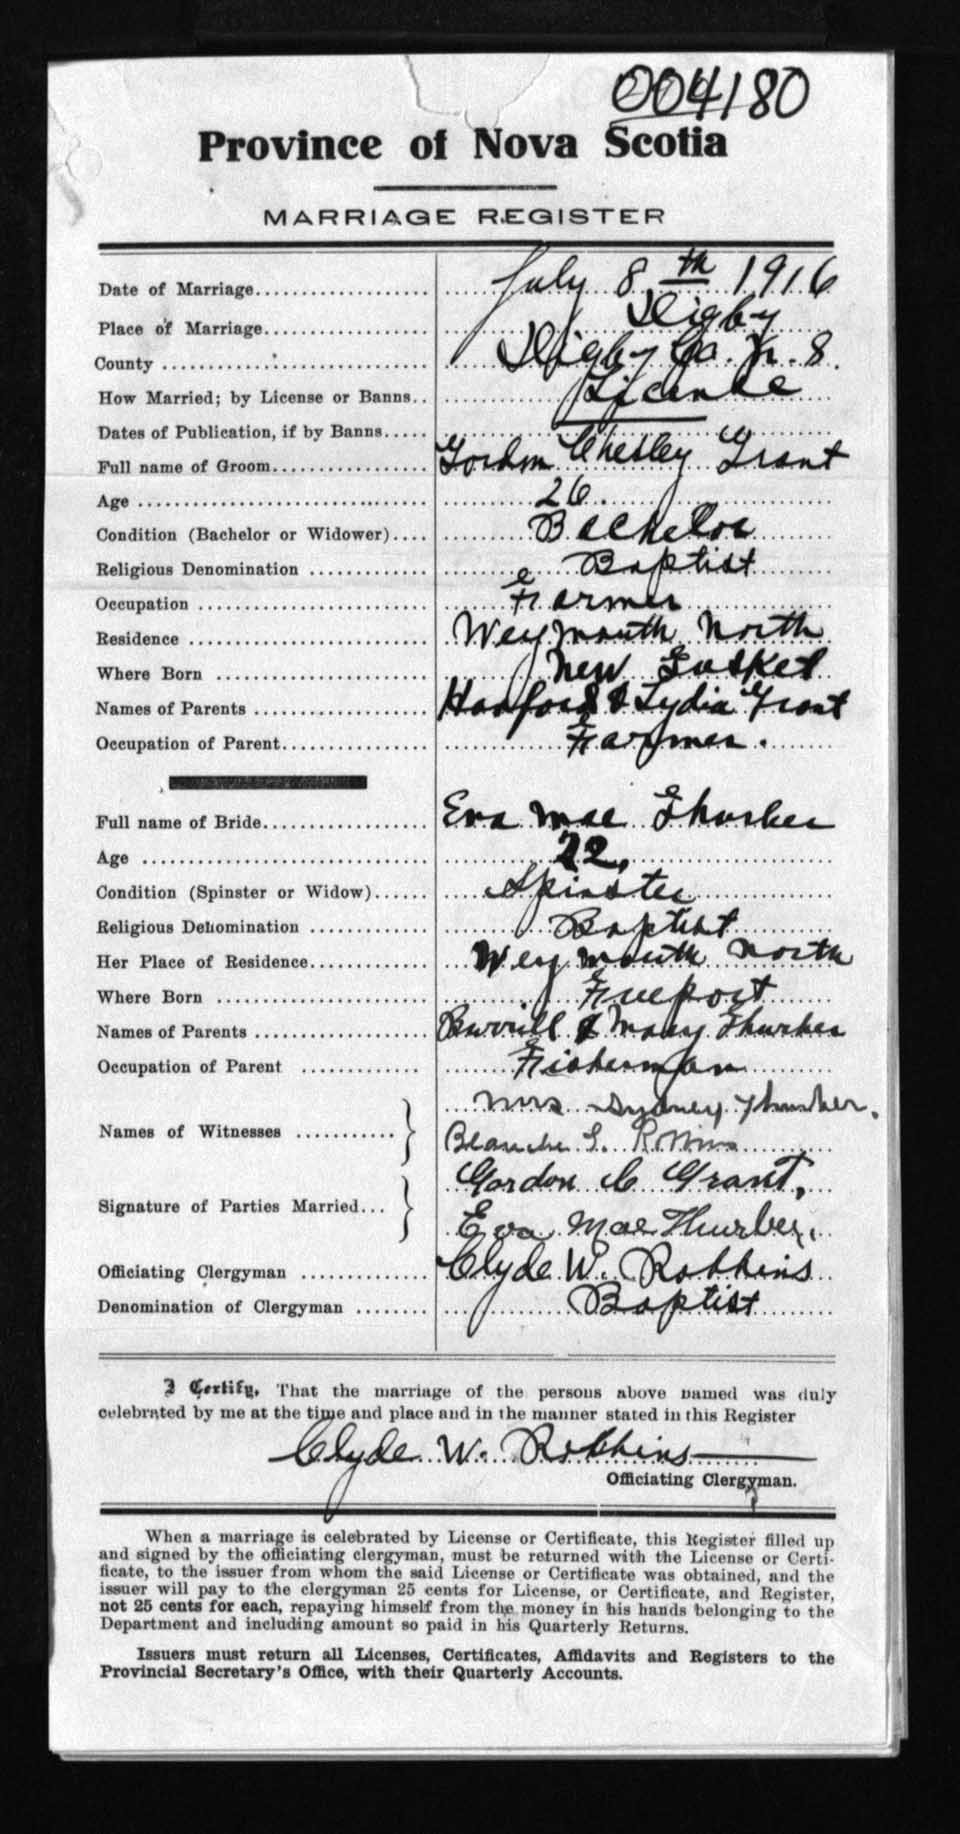 004180
Province of Nova Scotia
MARRIAGE REGISTER
Date of Marriage.................... July 8th 1916
Place of Marriage................... Digby
County ............................. Digby Co. N. S.
How Married; by License or Banns.. License
Dates of Publication, if by Banns.....
Full name of Groom.................. Gordon Chesley Grant
Age ................................ 26.
Condition (Bachelor or Widower).... Bachelor
Religious Denomination ............. Baptist
Occupation ......................... Farmer
Residence .......................... Weymouth North
Where Born ......................... New Tusket
Names of Parents ................... Hanford & Lydia Grant
Occupation of Parent................ Farmer.
Full name of Bride.................. Eva Mae Thurber
Age ................................ 22,
Condition (Spinster or Widow)...... Spinster
Religious Denomination ............. Baptist
Her Place of Residence.............. Weymouth North
Where Born ......................... Freeport
Names of Parents ................... Burrill & Mary Thurber
Occupation of Parent ............. Fisherman
Mrs Sydney Thurber.
Names of Witnesses ...........
Blanche G. Robbins
Gordon C Grant,
Signature of Parties Married...
Eva Mae Thurber,
Officiating Clergyman .............. Clyde W. Robbins
Denomination of Clergyman ........ Baptist
I Certify, That the marriage of the persons above named was duly
celebrated by me at the time and place and in the manner stated in this Register
Clyde W. Robbins
Officiating Clergyman.
When a marriage is celebrated by License or Certificate, this Register filled up
and signed by the officiating clergyman, must be returned with the License or Certi-
ficate, to the issuer from whom the said License or Certificate was obtained, and the
issuer will pay to the clergyman 25 cents for License, or Certificate, and Register,
not 25 cents for each, repaying himself from the money in his hands belonging to the
Department and including amount so paid in his Quarterly Returns.
Issuers must return all Licenses, Certificates, Affidavits and Registers to the
Provincial Secretary's Office, with their Quarterly Accounts.